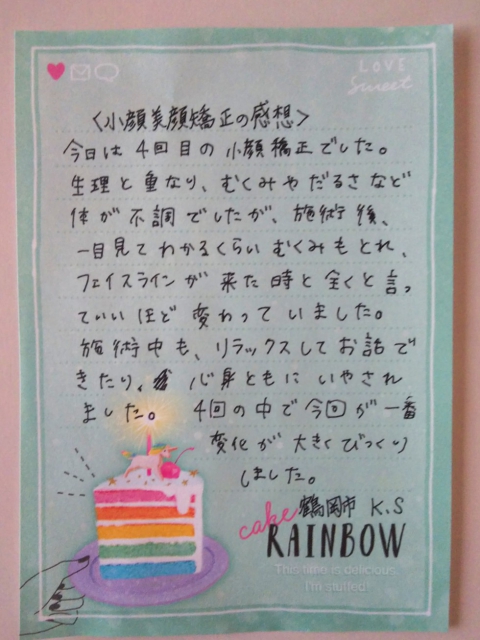 LOVE
Sweet
〈小顔美顔矯正の感想〉
今日は4回目の小顔矯正でした。
生理と重なり、むくみやだるさなど
体が不調でしたが、施術後、
一目見てわかるくらいむくみもとれ、
フェイスラインが来た時と全くと言っ
ていいほど変わっていました。
施術中も、リラックスしてお話で
きたり、心身ともにいやされ
ました。4回の中で今回が一番
変化が大きくびっくり
しました。
鶴岡市 K.S
cake
RAINBOW
This time is delicious.
I'm stuffed.